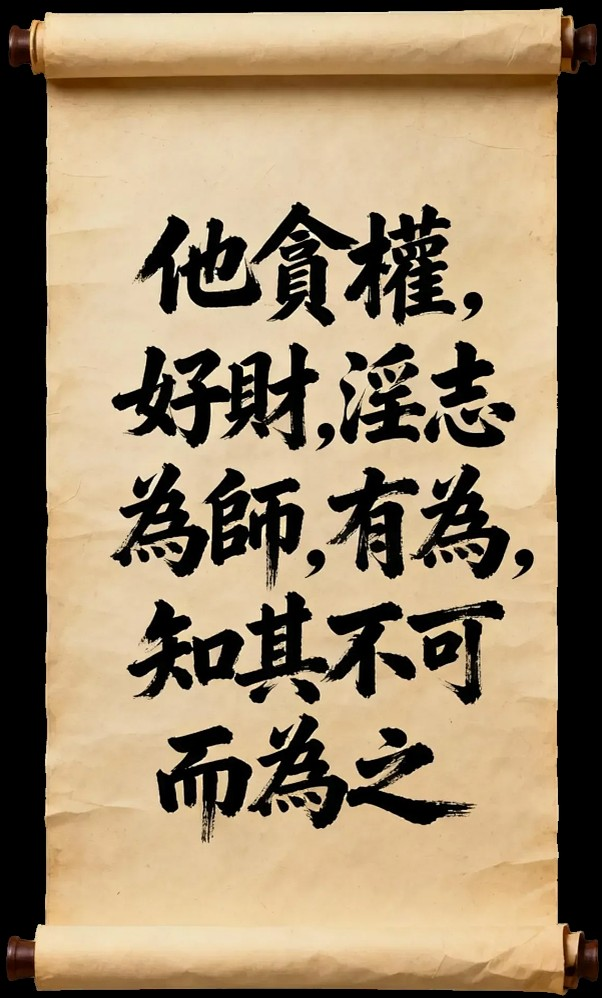 他貪權，
好財，淫志
為師，有為，
知其不可
而為之